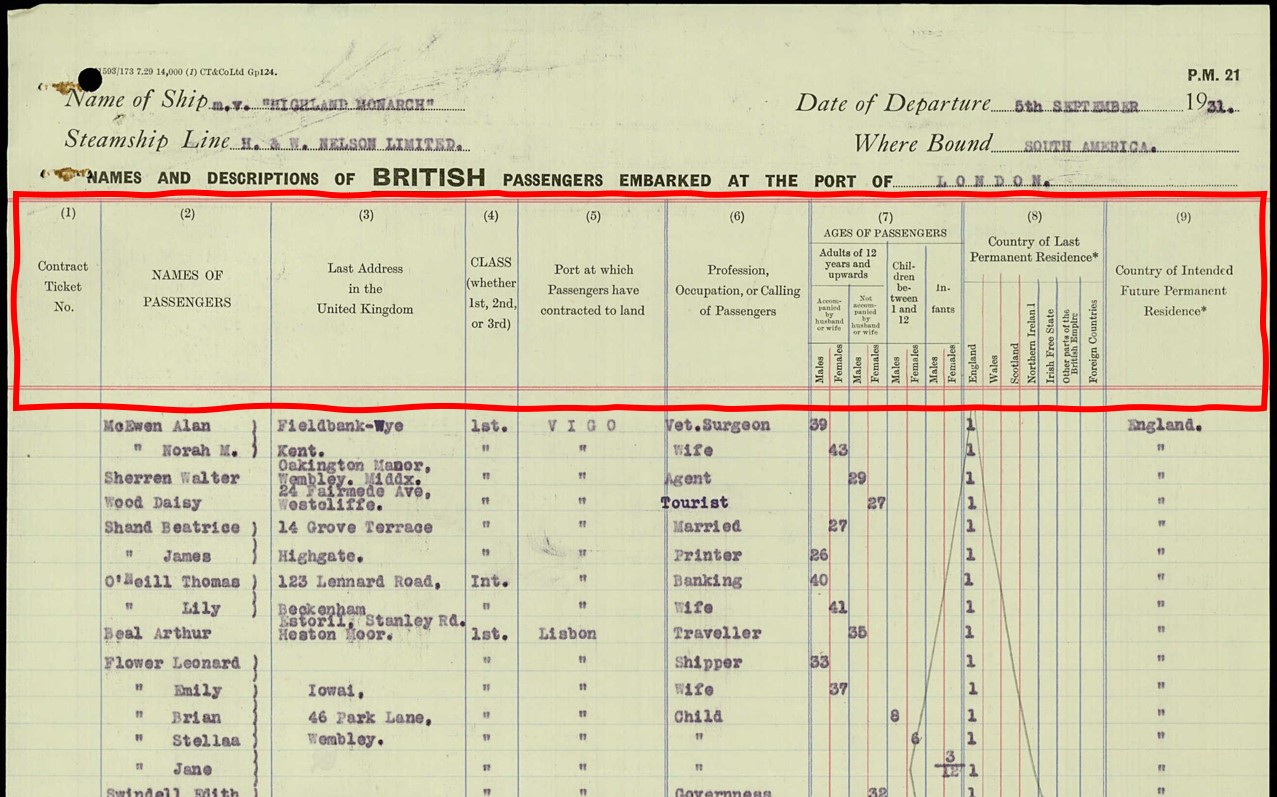 1593/173 7.29 14,000 (1) CT&CoLtd Gp124.
P.M. 21
Name of Ship m.v. "HIGHLAND MONARCH" Date of Departure 5th SEPTEMBER 1931.
Steamship Line H. & W. NELSON LIMITED. Where Bound SOUTH AMERICA.
NAMES AND DESCRIPTIONS OF BRITISH PASSENGERS EMBARKED AT THE PORT OF LONDON.
(1) (2) (3) (4) (5) (6) (7) (8) (9)
Contract
Ticket
No.
NAMES OF
PASSENGERS
Last Address
in the
United Kingdom
CLASS
(whether
1st, 2nd,
or 3rd)
Port at which
Passengers have
contracted to land
Profession,
Occupation, or Calling
of Passengers
AGES OF PASSENGERS
Adults of 12
years and
upwards
Accom-
panied
by
husband
or wife
Not
accom-
panied
by
husband
or wife
Chil-
dren
be-
tween
1 and
12
In-
fants
Males Females Males Females Males Females Males Females
Country of Last
Permanent Residence*
England
Wales
Scotland
Northern Ireland
Irish Free State
Other parts of the
British Empire
Foreign Countries
Country of Intended
Future Permanent
Residence*
McEwen Alan ) Fieldbank-Wye 1st. VIGO Vet.Surgeon 39 1 England.
" Norah M. ) Kent. " " Wife 43 1 "
Oakington Manor,
Sherren Walter Wembley. Middx. " " Agent 29 1 "
24 Fairmede Ave,
Wood Daisy Westcliffe. " " Tourist 27 1 "
Shand Beatrice ) 14 Grove Terrace " " Married 27 1 "
" James ) Highgate. " " Printer 26 1 "
O'Neill Thomas ) 123 Lennard Road, Int. " Banking 40 1 "
" Lily ) Beckenham " " Wife 41 1 "
Estoril, Stanley Rd.
Beal Arthur Heston Moor. 1st. Lisbon Traveller 35 1 "
Flower Leonard ) " " Shipper 33 1 "
" Emily ) Iowai, " " Wife 37 1 "
" Brian ) 46 Park Lane, " " Child 8 1 "
" Stellaa ) Wembley. " " " 6 1 "
" Jane ) " " " 3/12 1 "
Swindell Edith " " Governess 32 1 "